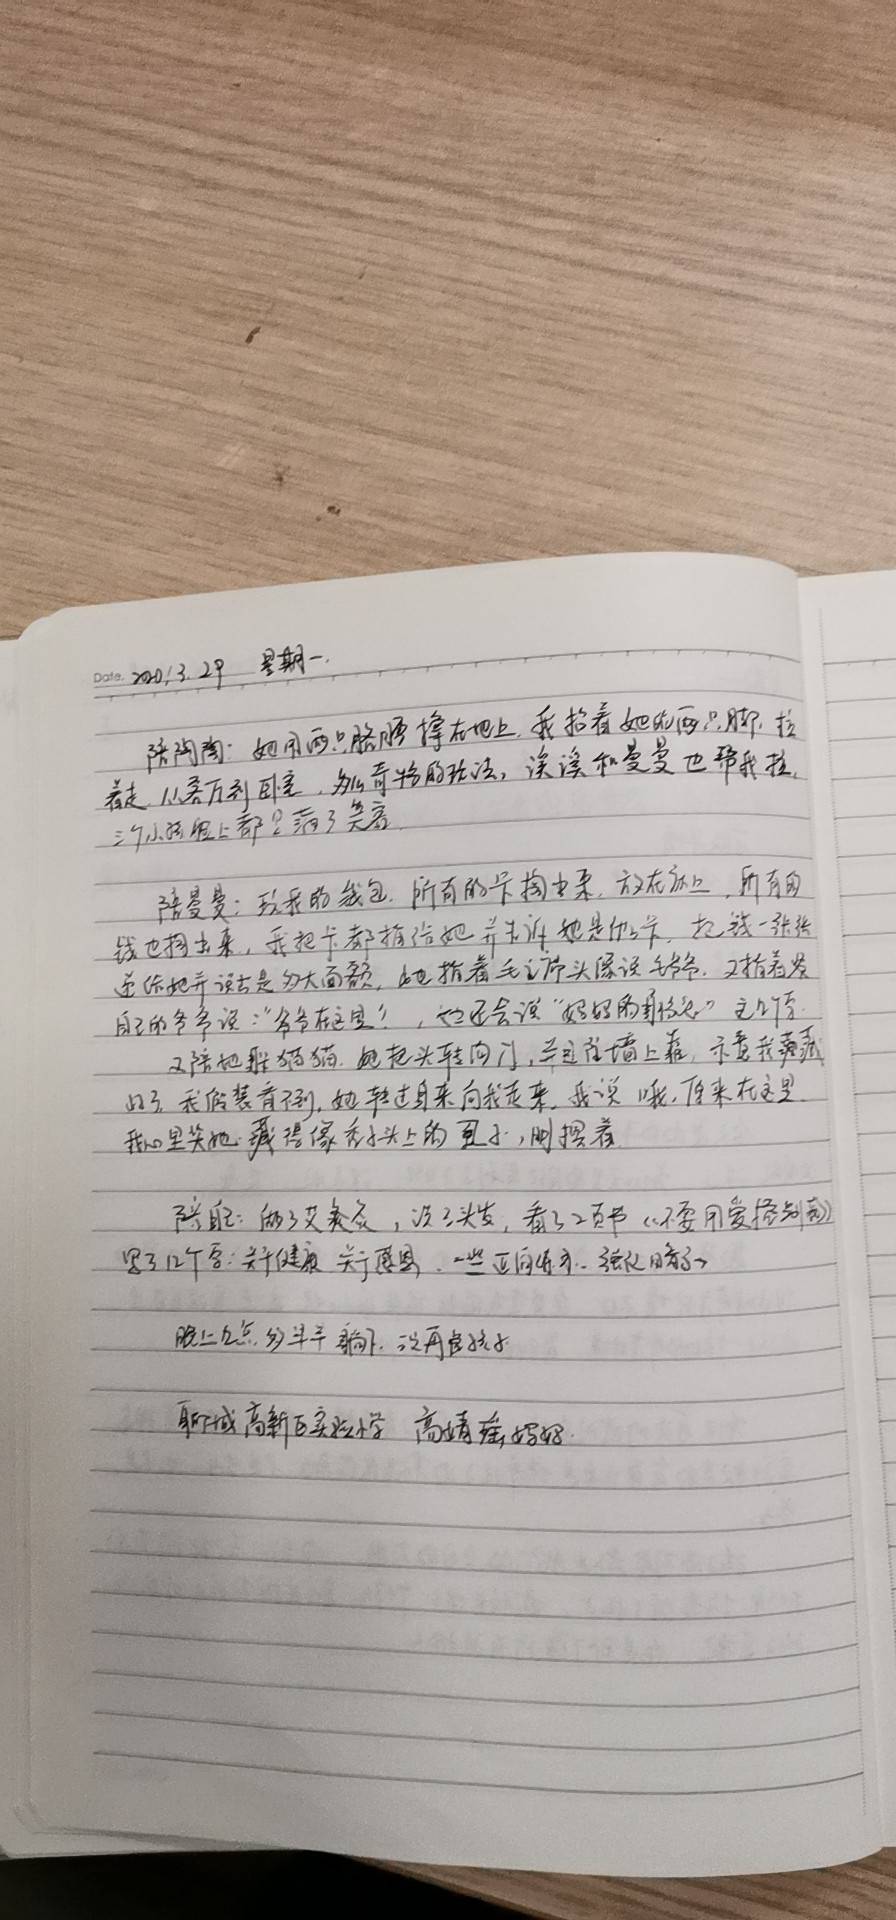 Date. 2021.3.29 星期一.
陪陶陶：她用两只胳膊撑在地上，我抬着她的两只脚，拉
着走，从客厅到卧室，多么奇特的玩法，溪溪和曼曼也帮我拉，
三个小孩脸上都满了笑容
陪曼曼：我的钱包，所有的卡掏出来，放在，所有的
钱也掏出来，我把卡都指给她并告诉她是什么卡，把钱一张张
递给她并说出是多大面额，她指着毛主席头像说爷爷，又指着
自己的爷爷说：“爷爷在这里！，她还会说“妈妈的”这个字.
又陪她躲猫猫，她把头转向门，并且往墙上靠，示意我藏
好了，我假装看不到，她转过身来向我走来，我说哦，原来在这里
我心里笑她藏得像秃子头上的虱子，明摆着
陪自己：做了艾灸，洗了头发，看了2页书《不要用爱控制我》
写了12个字：关于健康 关于感恩，一些正向
晚上九点多半躺下，没再管孩子
聊城高新区实验小学 高婧瑶妈妈.